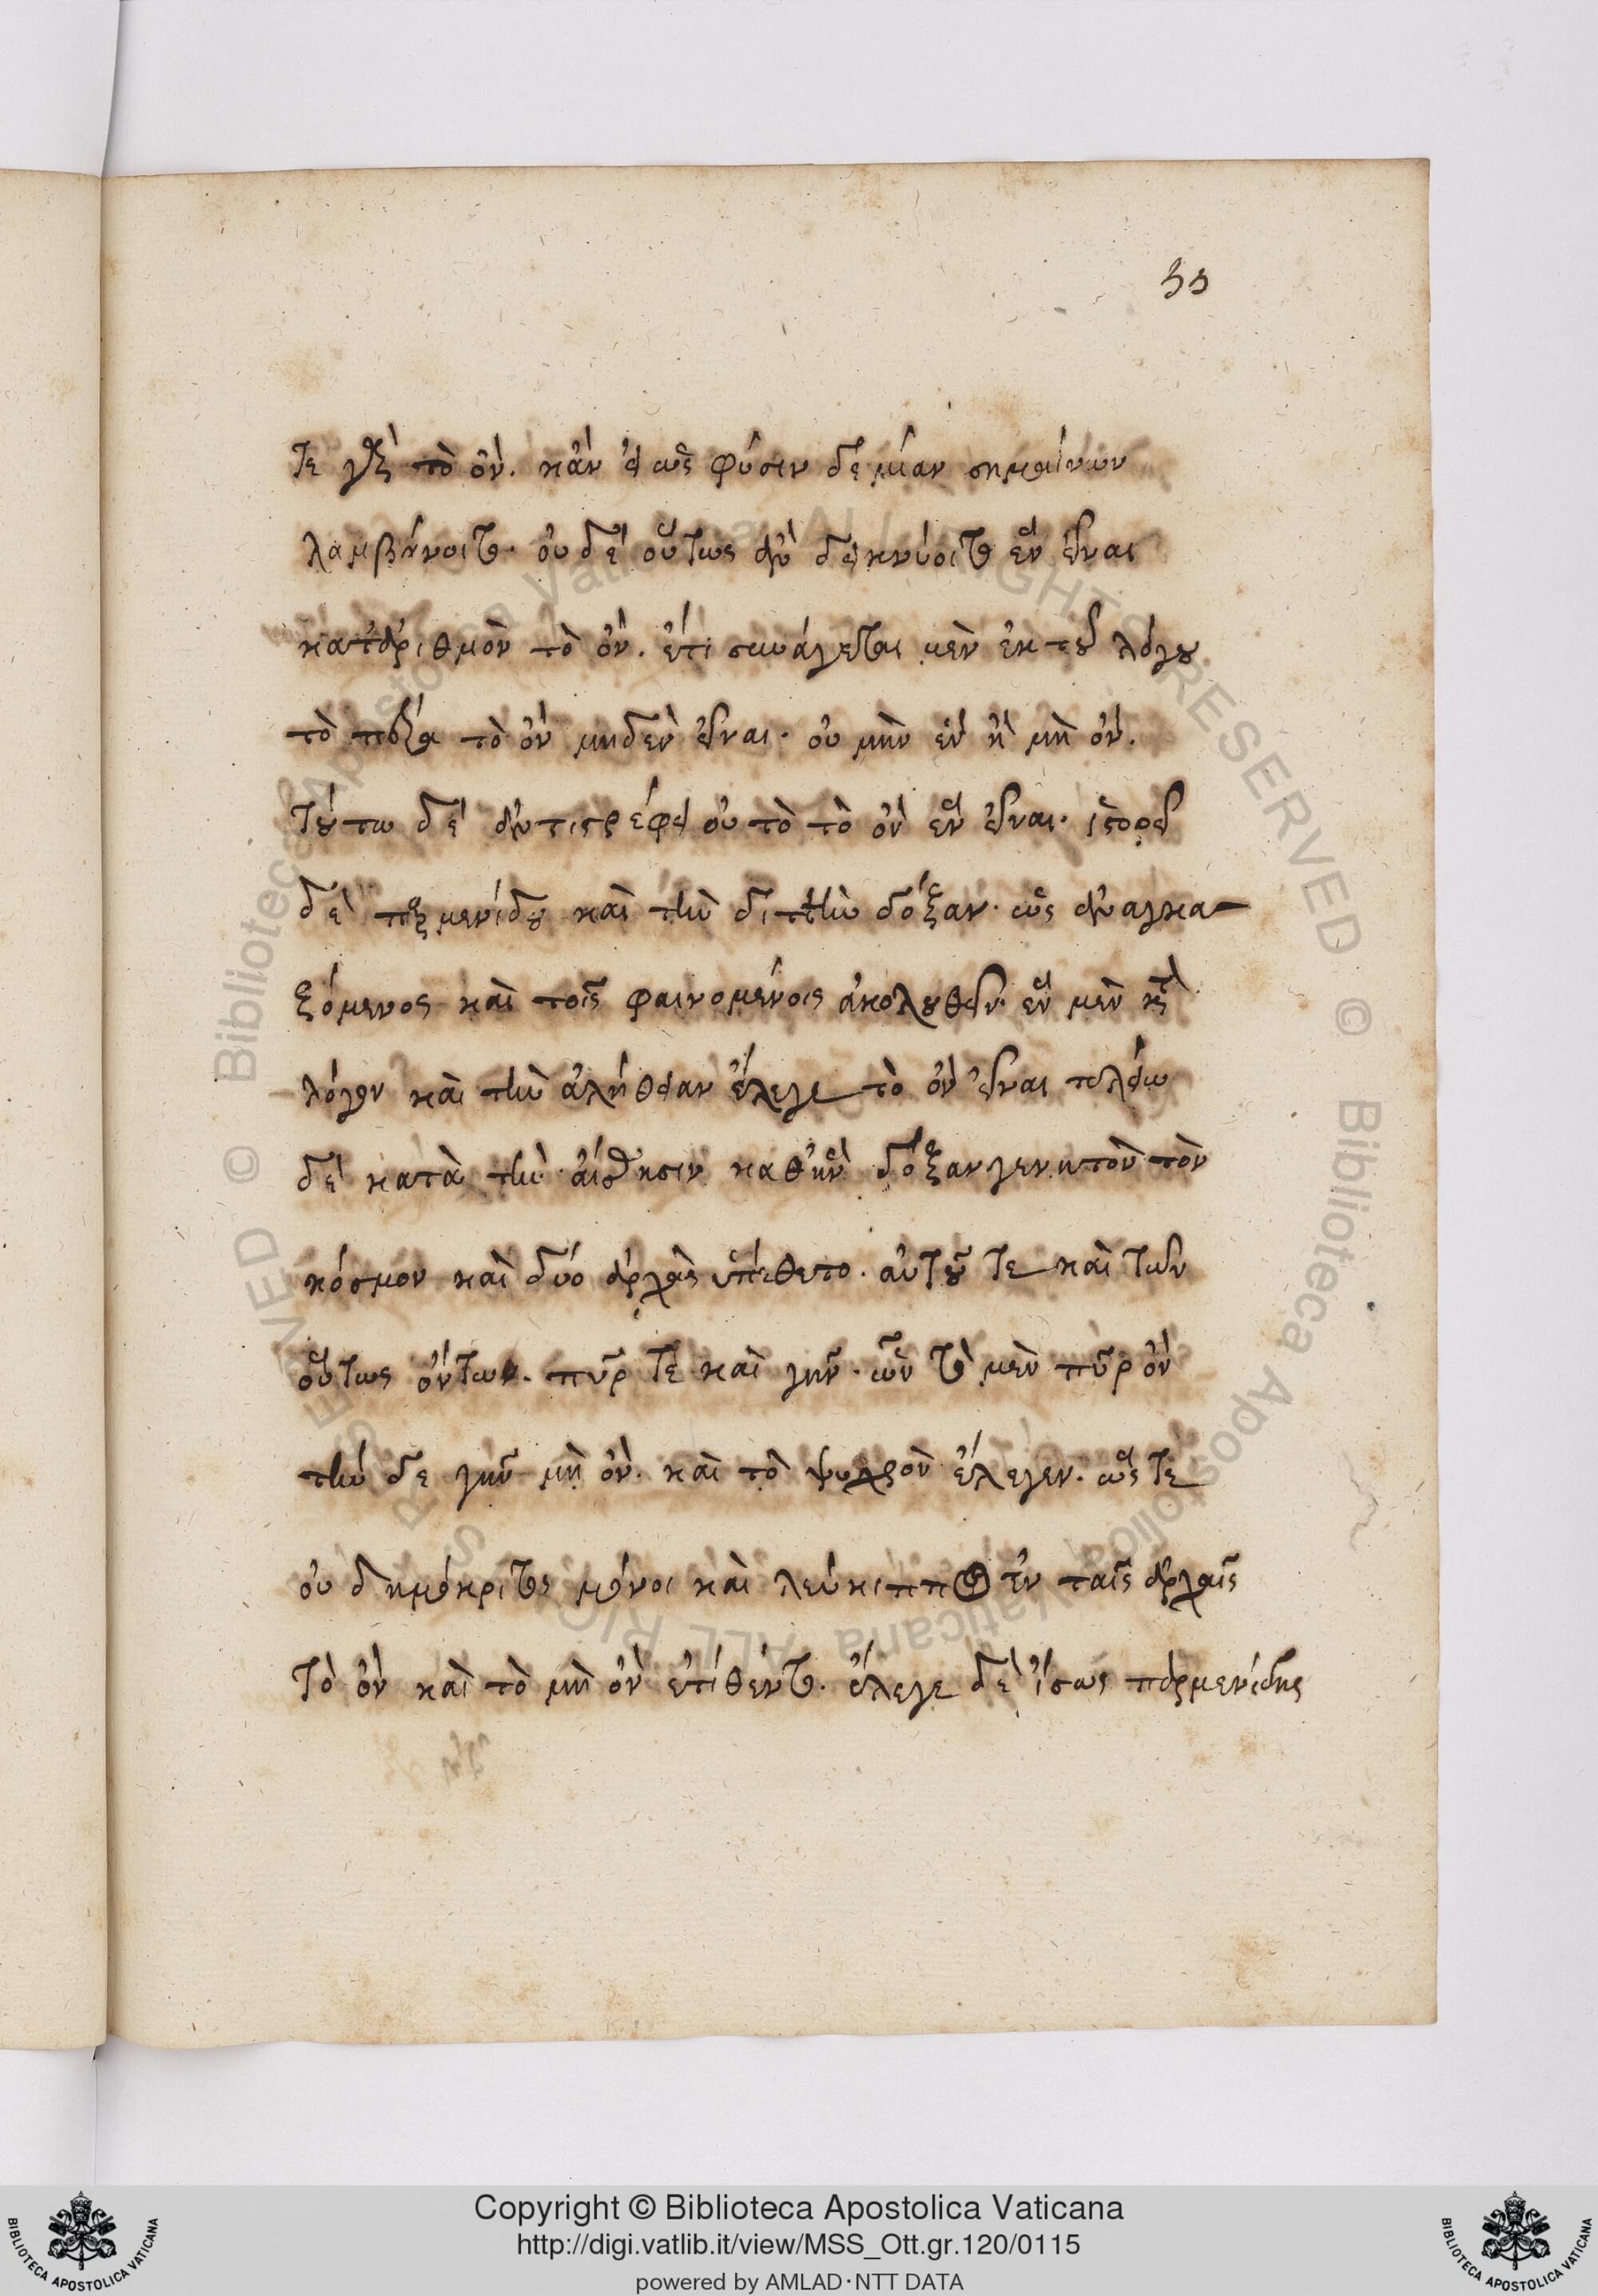 55
τε γὰρ τὸ ὄν. κἂν εἰ ὡς φύσιν δὲ μίαν σημαίνων
λαμβάνοιτο. οὐδὲ οὕτως ἂν δεικνύοιτο ἓν εἶναι
κατ' ἀριθμὸν τὸ ὄν. ἔτι συνάγεται μὲν ἐκ τοῦ λόγου
τὸ παρὰ τὸ ὂν μηδὲν εἶναι. οὐ μὴν ἓν ἢ μὴ ὄν.
τούτω δὲ ἀντιστρέφει οὐ τὸ τὸ ὂν ἓν εἶναι. ἱστορεῖ
δὲ παρμενίδου καὶ τὴν διττὴν δόξαν. ὡς ἀναγκα
ζόμενος καὶ τοῖς φαινομένοις ἀκολουθεῖν. ἓν μὲν κατὰ
λόγον καὶ τὴν ἀλήθειαν ἔλεγε τὸ ὂν εἶναι πλείω
δὲ κατὰ τὴν αἴσθησιν καθ' ἣν δόξαν γενητὸν τὸν
κόσμον καὶ δύο ἀρχὰς ὑπέθετο. αὐτοῦ τε καὶ τῶν
οὕτως ὄντων. πῦρ τε καὶ γῆν. ὧν τὸ μὲν πῦρ ὂν
τὴν δὲ γῆν μὴ ὄν. καὶ τὸ ψυχρὸν ἔλεγεν. ὥς τε
οὐ δημόκριτος μόνοι καὶ λεύκιππος ἐν ταῖς ἀρχαῖς
τὸ ὂν καὶ τὸ μὴ ὂν ἐτίθεντο. ἔλεγε δὲ ἴσως παρμενίδης
Copyright © Biblioteca Apostolica Vaticana
http://digi.vatlib.it/view/MSS_Ott.gr.120/0115
powered by AMLAD·NTT DATA